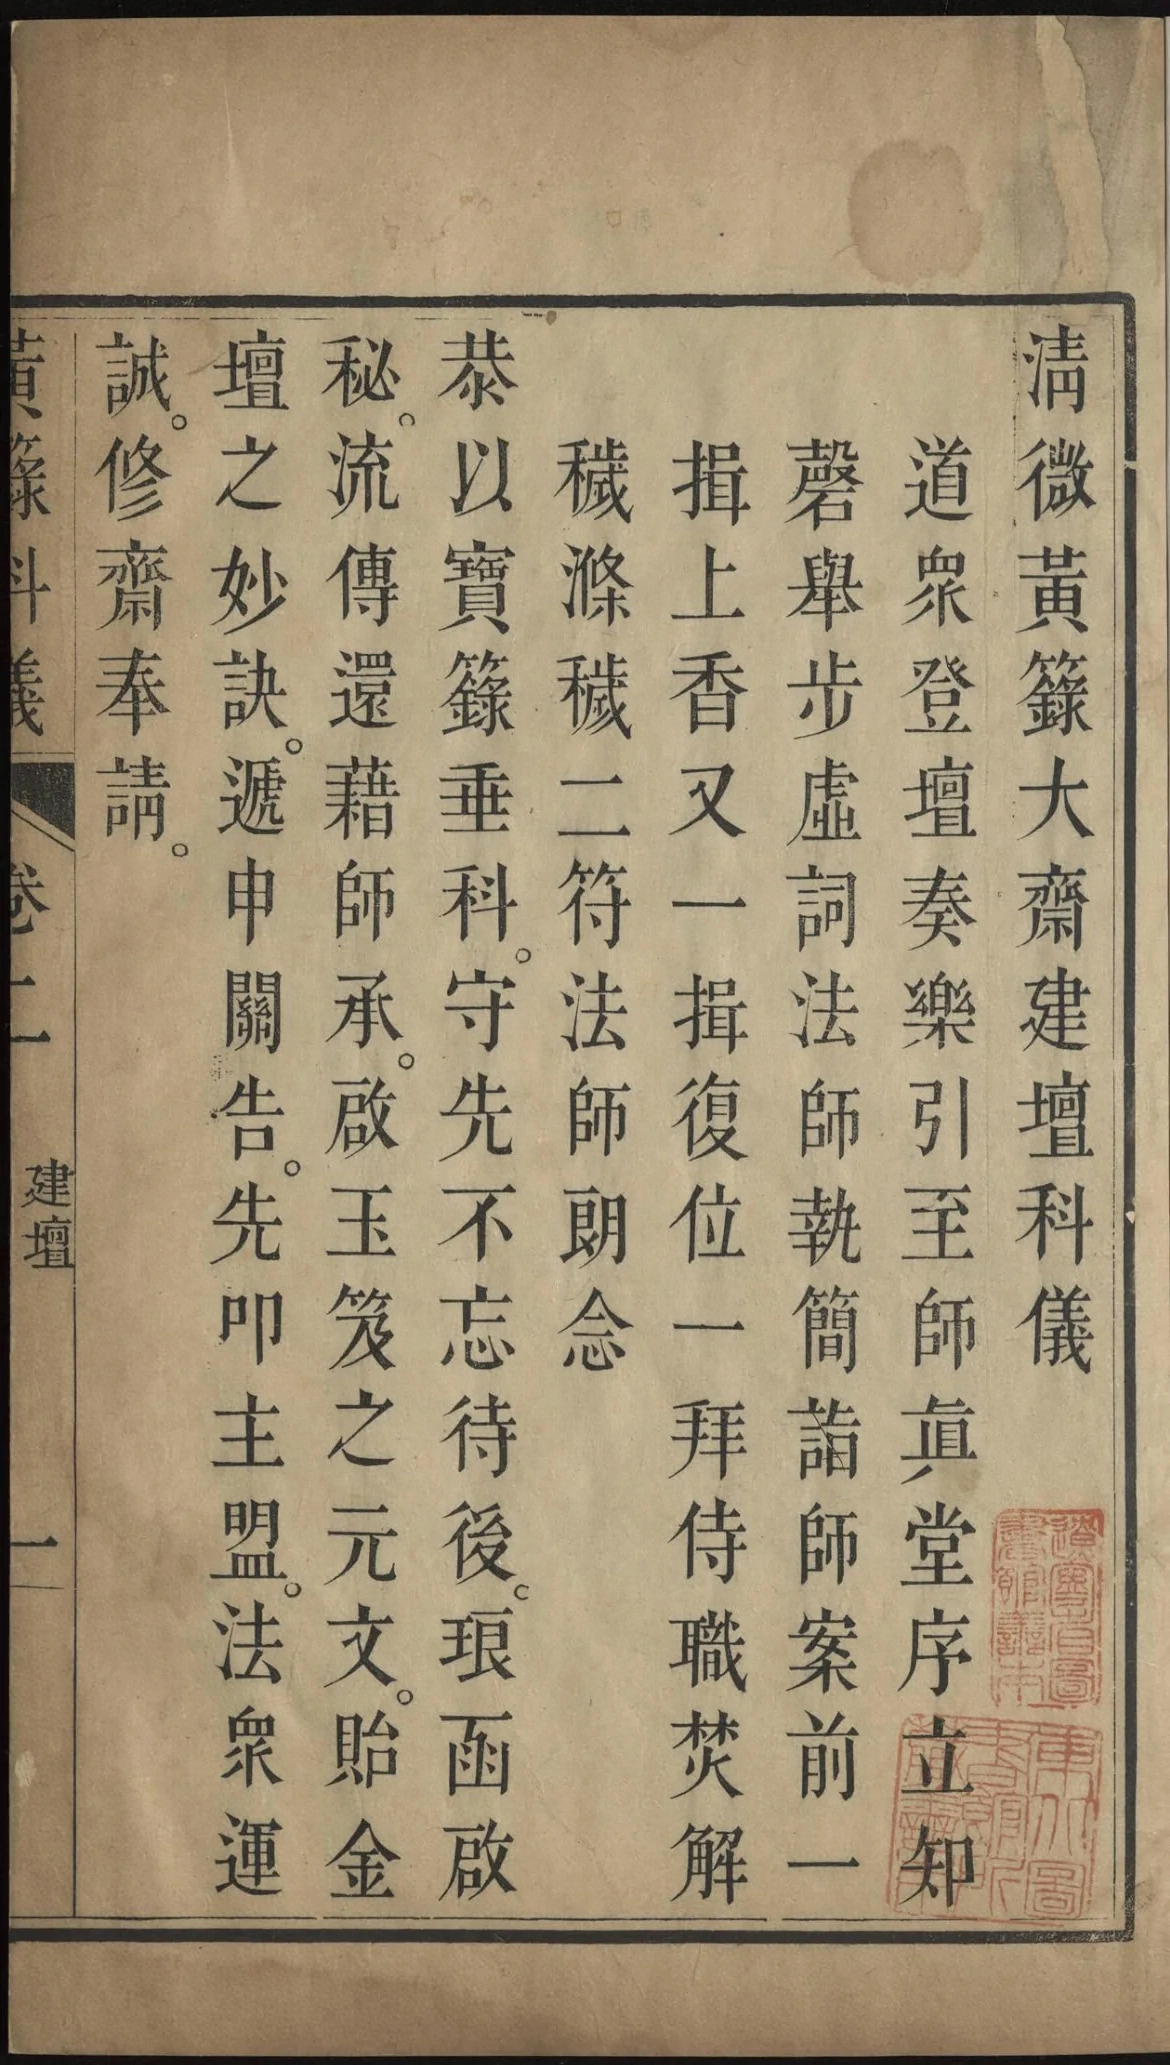 淸微黃籙大齋建壇科儀
道眾登壇奏樂引至師眞堂序立知
磬舉步虛詞法師執簡詣師案前一
揖上香又一揖復位一拜侍職焚解
穢滌穢二符法師朗念
恭以寶籙垂科。守先不忘待後。琅函啟
秘。流傳還藉師承。啟玉笈之元文。貽金
壇之妙訣。遞申關告。先叩主盟。法眾運
誠。修齋奉請。
黃籙科儀 卷二 建壇 一